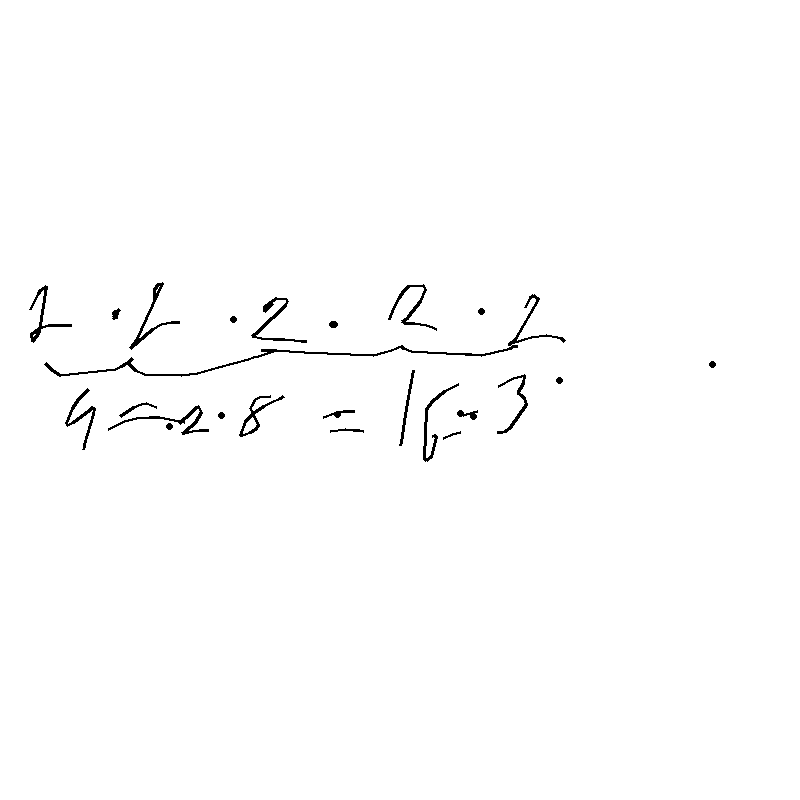 2 · 2 · 2 · 2 · 2
4 = · 2 · 8 = 16 · 3 ·